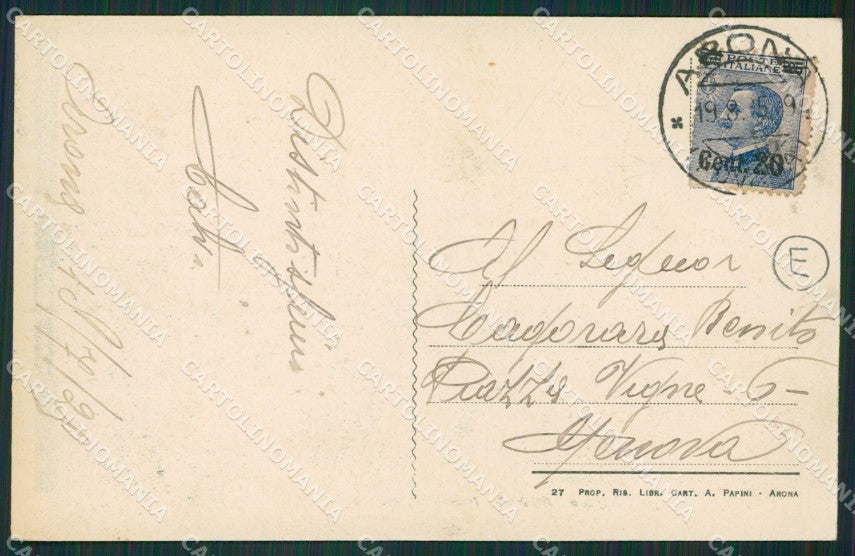 Distinti saluti
Arona
ARONA
19.8
POSTE
ITALIANE
Cent. 20
E
Al Signor
Benito
Piazza Vigne - 6 -
Genova
27 PROP. RIS. LIBR. CART. A. PAPINI - ARONA
CARTOLINOMANIA